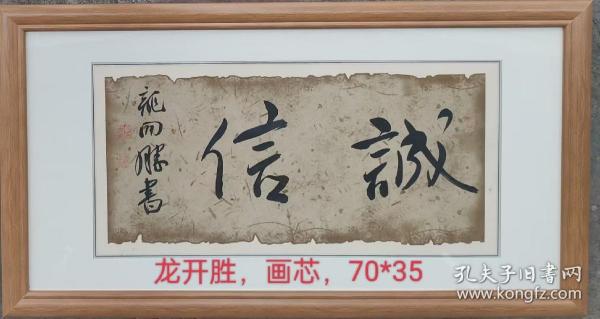 誠信
龍開勝書
龙开胜，画芯，70*35
孔夫子旧書网
www.kongfz.com